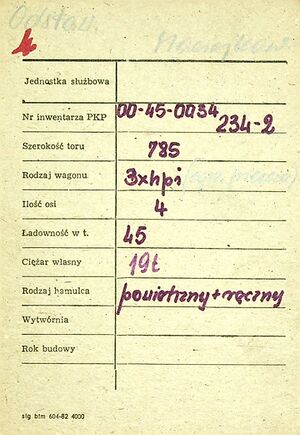 Odstaw.
Maciejków.
4
Jednostka służbowa
Nr inwentarza PKP 00-45-0034
234-2
Szerokość toru 785
Rodzaj wagonu 3xhpi
Ilość osi 4
Ładowność w t. 45
Ciężar własny 19t
Rodzaj hamulca powietrzny+ręczny
Wytwórnia
Rok budowy
slg btm 604-82 4000